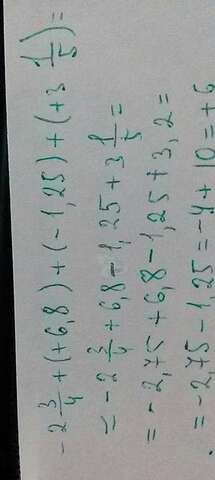 -2 3/4 + (+6,8) + (-1,25) + (+3 1/5) =
= -2 3/4 + 6,8 - 1,25 + 3 1/5 =
= -2,75 + 6,8 - 1,25 + 3,2 =
= -2,75 - 1,25 = -4 + 10 = +6